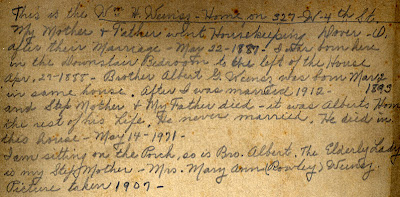 This is the Wm H. Wenisz - Home on 327 - W. 4th St.
My Mother & Father went Housekeeping Dover - O.
after their Marriage - May 22 - 1887. I was born here
in the Downstair Bedroom to the left of the House
Apr. 22 - 1888 - Brother Albert G. was born Mar 12
1893
in same house. After I was married 1912 -
and Step Mother & My Father died - it was Albert's Home
the rest of his life. He never married. He died in
this house - May 14 - 1971 -
I am sitting on the Porch, so is Bro. Albert. The Elderly Lady
is my Step Mother - Mrs. Mary Ann (Rowley)
Picture taken 1907 -